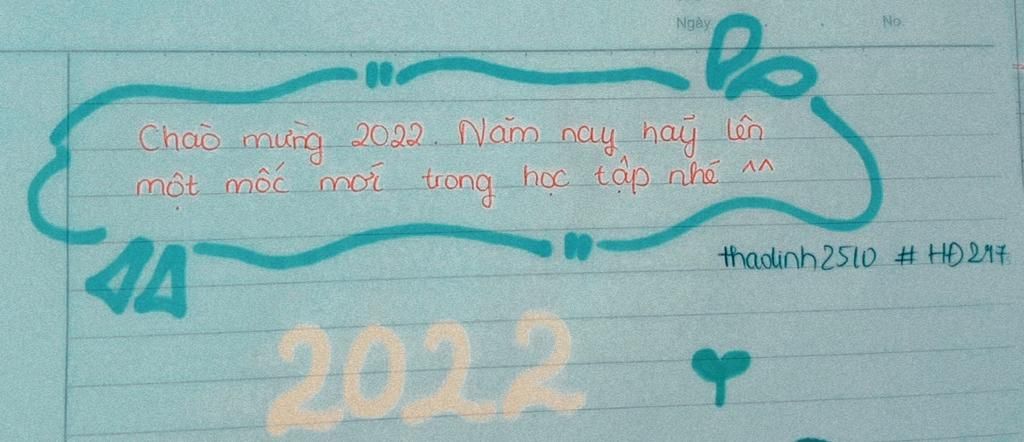 Ngày
No
Chào mừng 2022. Năm nay hãy lên
một mốc mới trong học tập nhé ^^
thaolinh2510 # HĐ247
2022